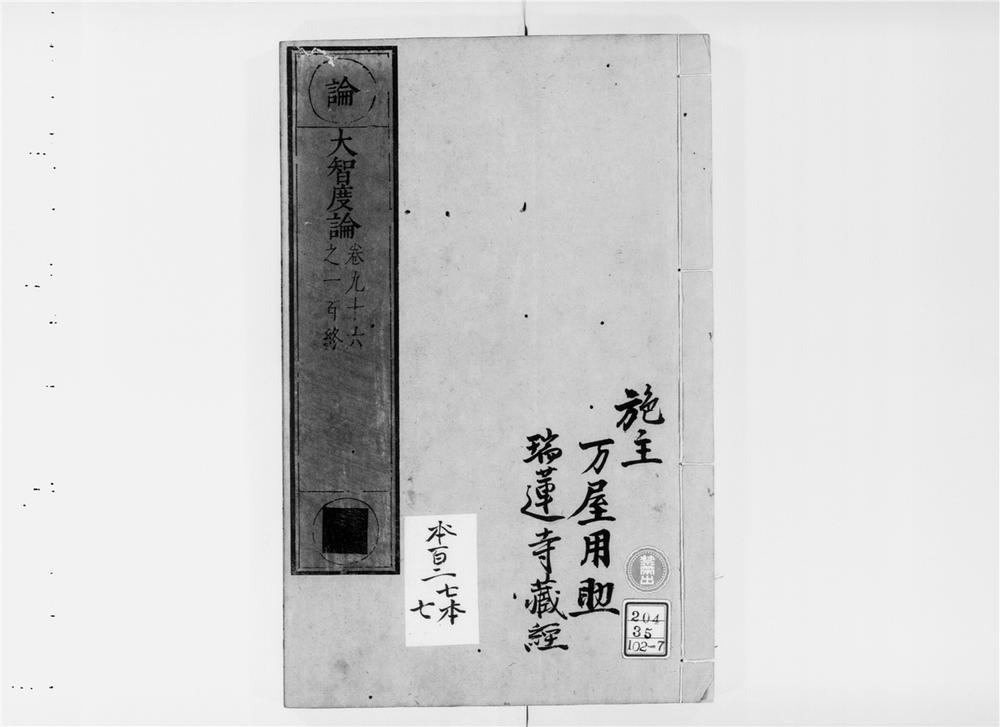 施主
万屋用助
瑞蓮寺藏經
論
大智度論
卷九十六
之一百終
本百二七本
七
禁帶出
204
35
102-7